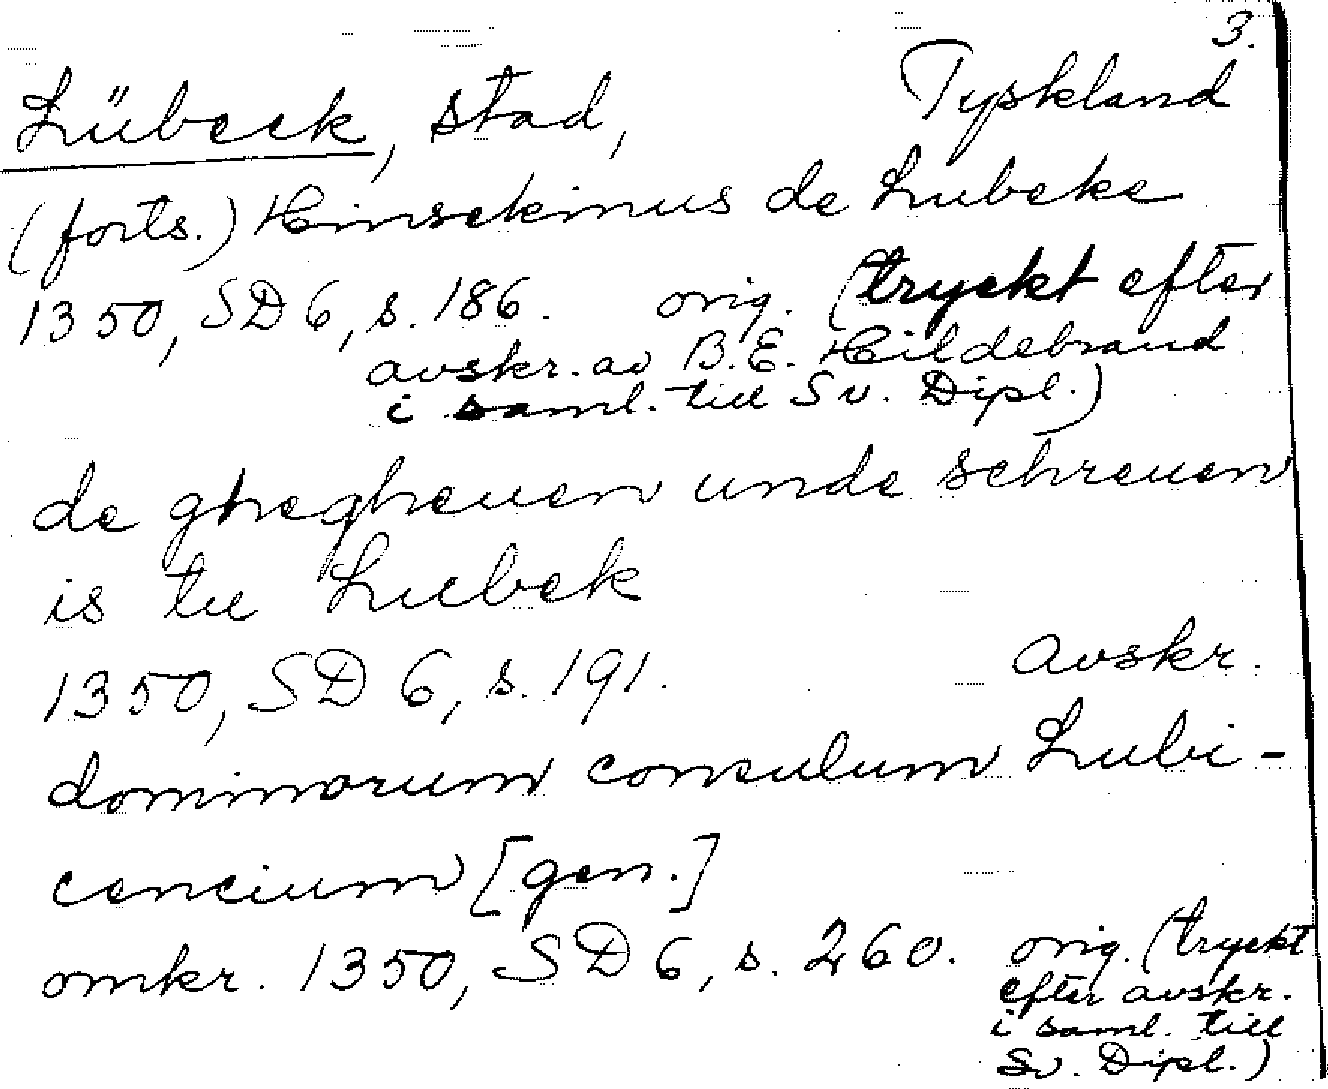 3.
Lübeck, stad, Tyskland
(forts.) Hinsekinus de Lubeke
1350, SD 6, s. 186. orig. (tryckt efter
avskr. av B.E. Hildebrand
i saml. till Sv. Dipl.)
de ghegheuen unde schreuen
is tu Lubek
1350, SD 6, s. 191. avskr.
dominorum consulum Lubi-
cencium [gen.]
omkr. 1350, SD 6, s. 260. orig. (tryckt
efter avskr.
i saml. till
Sv. Dipl.)